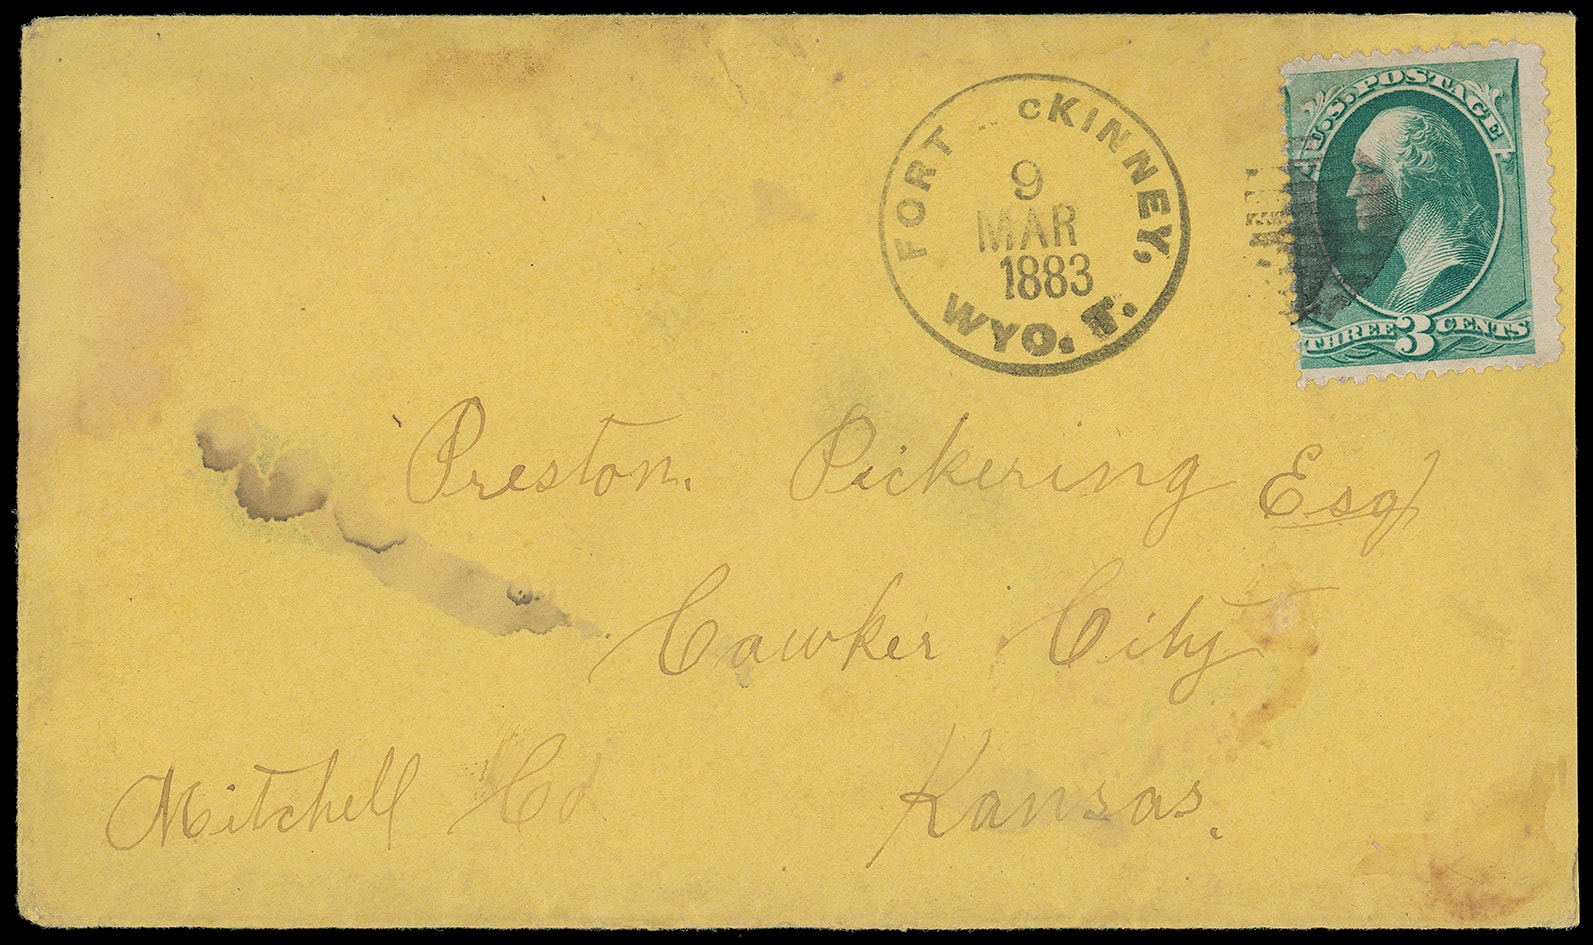 FORT McKINNEY,
9
MAR
1883
WYO. T.
U.S. POSTAGE
THREE 3 CENTS
Preston. Pickering Esq
Cawker City
Mitchell Co Kansas.